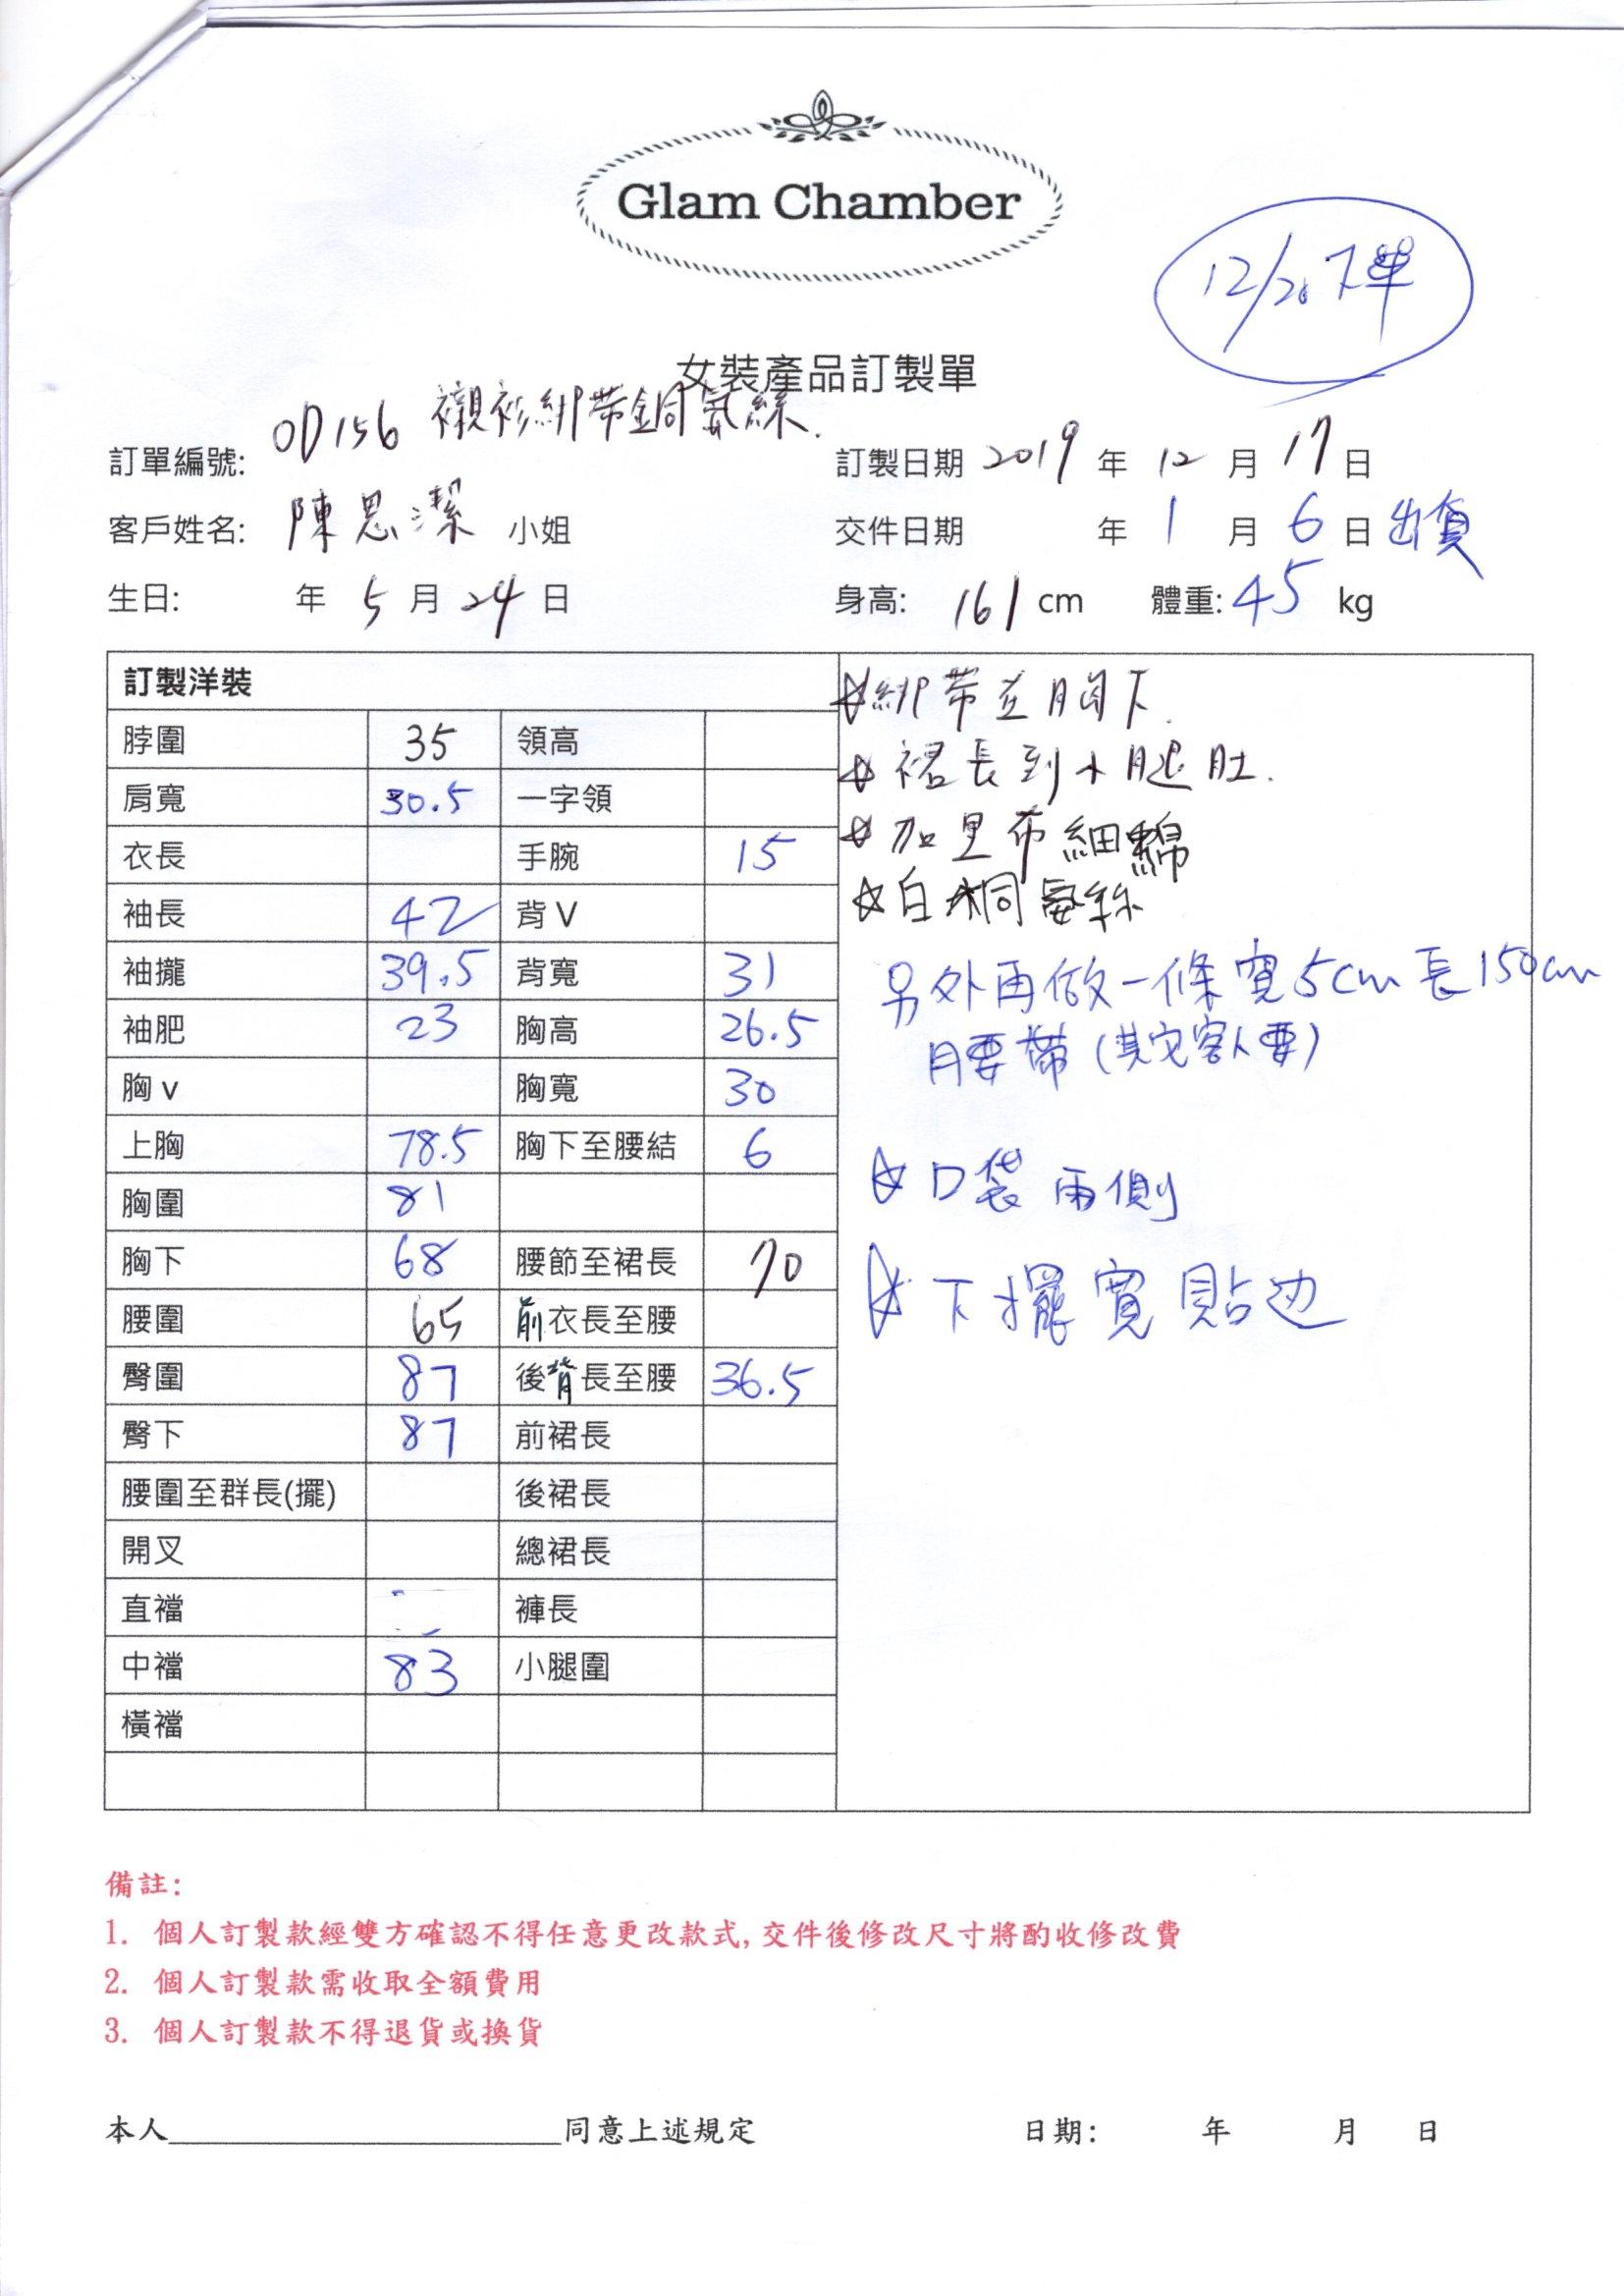 Glam Chamber
12/20下單
女裝產品訂製單
訂單編號: OD156 襯衫綁帶銅氨絲. 訂製日期 2019 年 12 月 17 日
客戶姓名: 陳思潔 小姐 交件日期 年 1 月 6 日 出貨
生日: 年 5 月 24 日 身高: 161 cm 體重: 45 kg
訂製洋裝
脖圍 35 領高
肩寬 30.5 一字領
衣長 手腕 15
袖長 42 背V
袖攏 39.5 背寬 31
袖肥 23 胸高 26.5
胸v 胸寬 30
上胸 78.5 胸下至腰結 6
胸圍 81
胸下 68 腰節至裙長 70
腰圍 65 前衣長至腰
臀圍 87 後背長至腰 36.5
臀下 87 前裙長
腰圍至群長(擺) 後裙長
開叉 總裙長
直襠 褲長
中襠 83 小腿圍
橫襠
☆綁帶在胸下.
☆裙長到小腿肚.
☆加里布細綿
☆白 銅氨絲
另外再做一條寬5cm長150cm
腰帶(其它客人要)
☆口袋兩側
☆下擺寬貼边
備註:
1. 個人訂製款經雙方確認不得任意更改款式, 交件後修改尺寸將酌收修改費
2. 個人訂製款需收取全額費用
3. 個人訂製款不得退貨或換貨
本人____________________同意上述規定 日期: 年 月 日